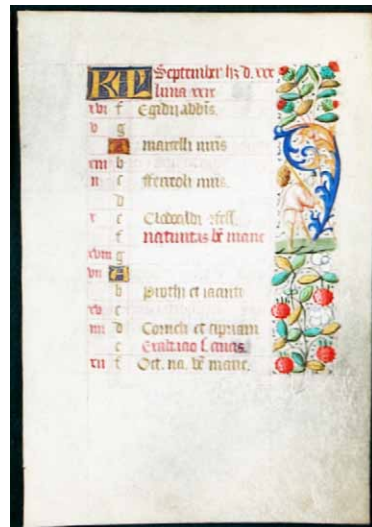 KL September hz d. xxx
luna xxix
xvi f Egidii abbis.
v g
A marcelli mris
xiii b
ii c
d
x e
f natiuitas be marie
xviii g
vii A
b Prothi et iacinti
xv c
iiii d Corneli et cipriani
e Exaltatio s. crucis
xii f Oct. na. be marie.